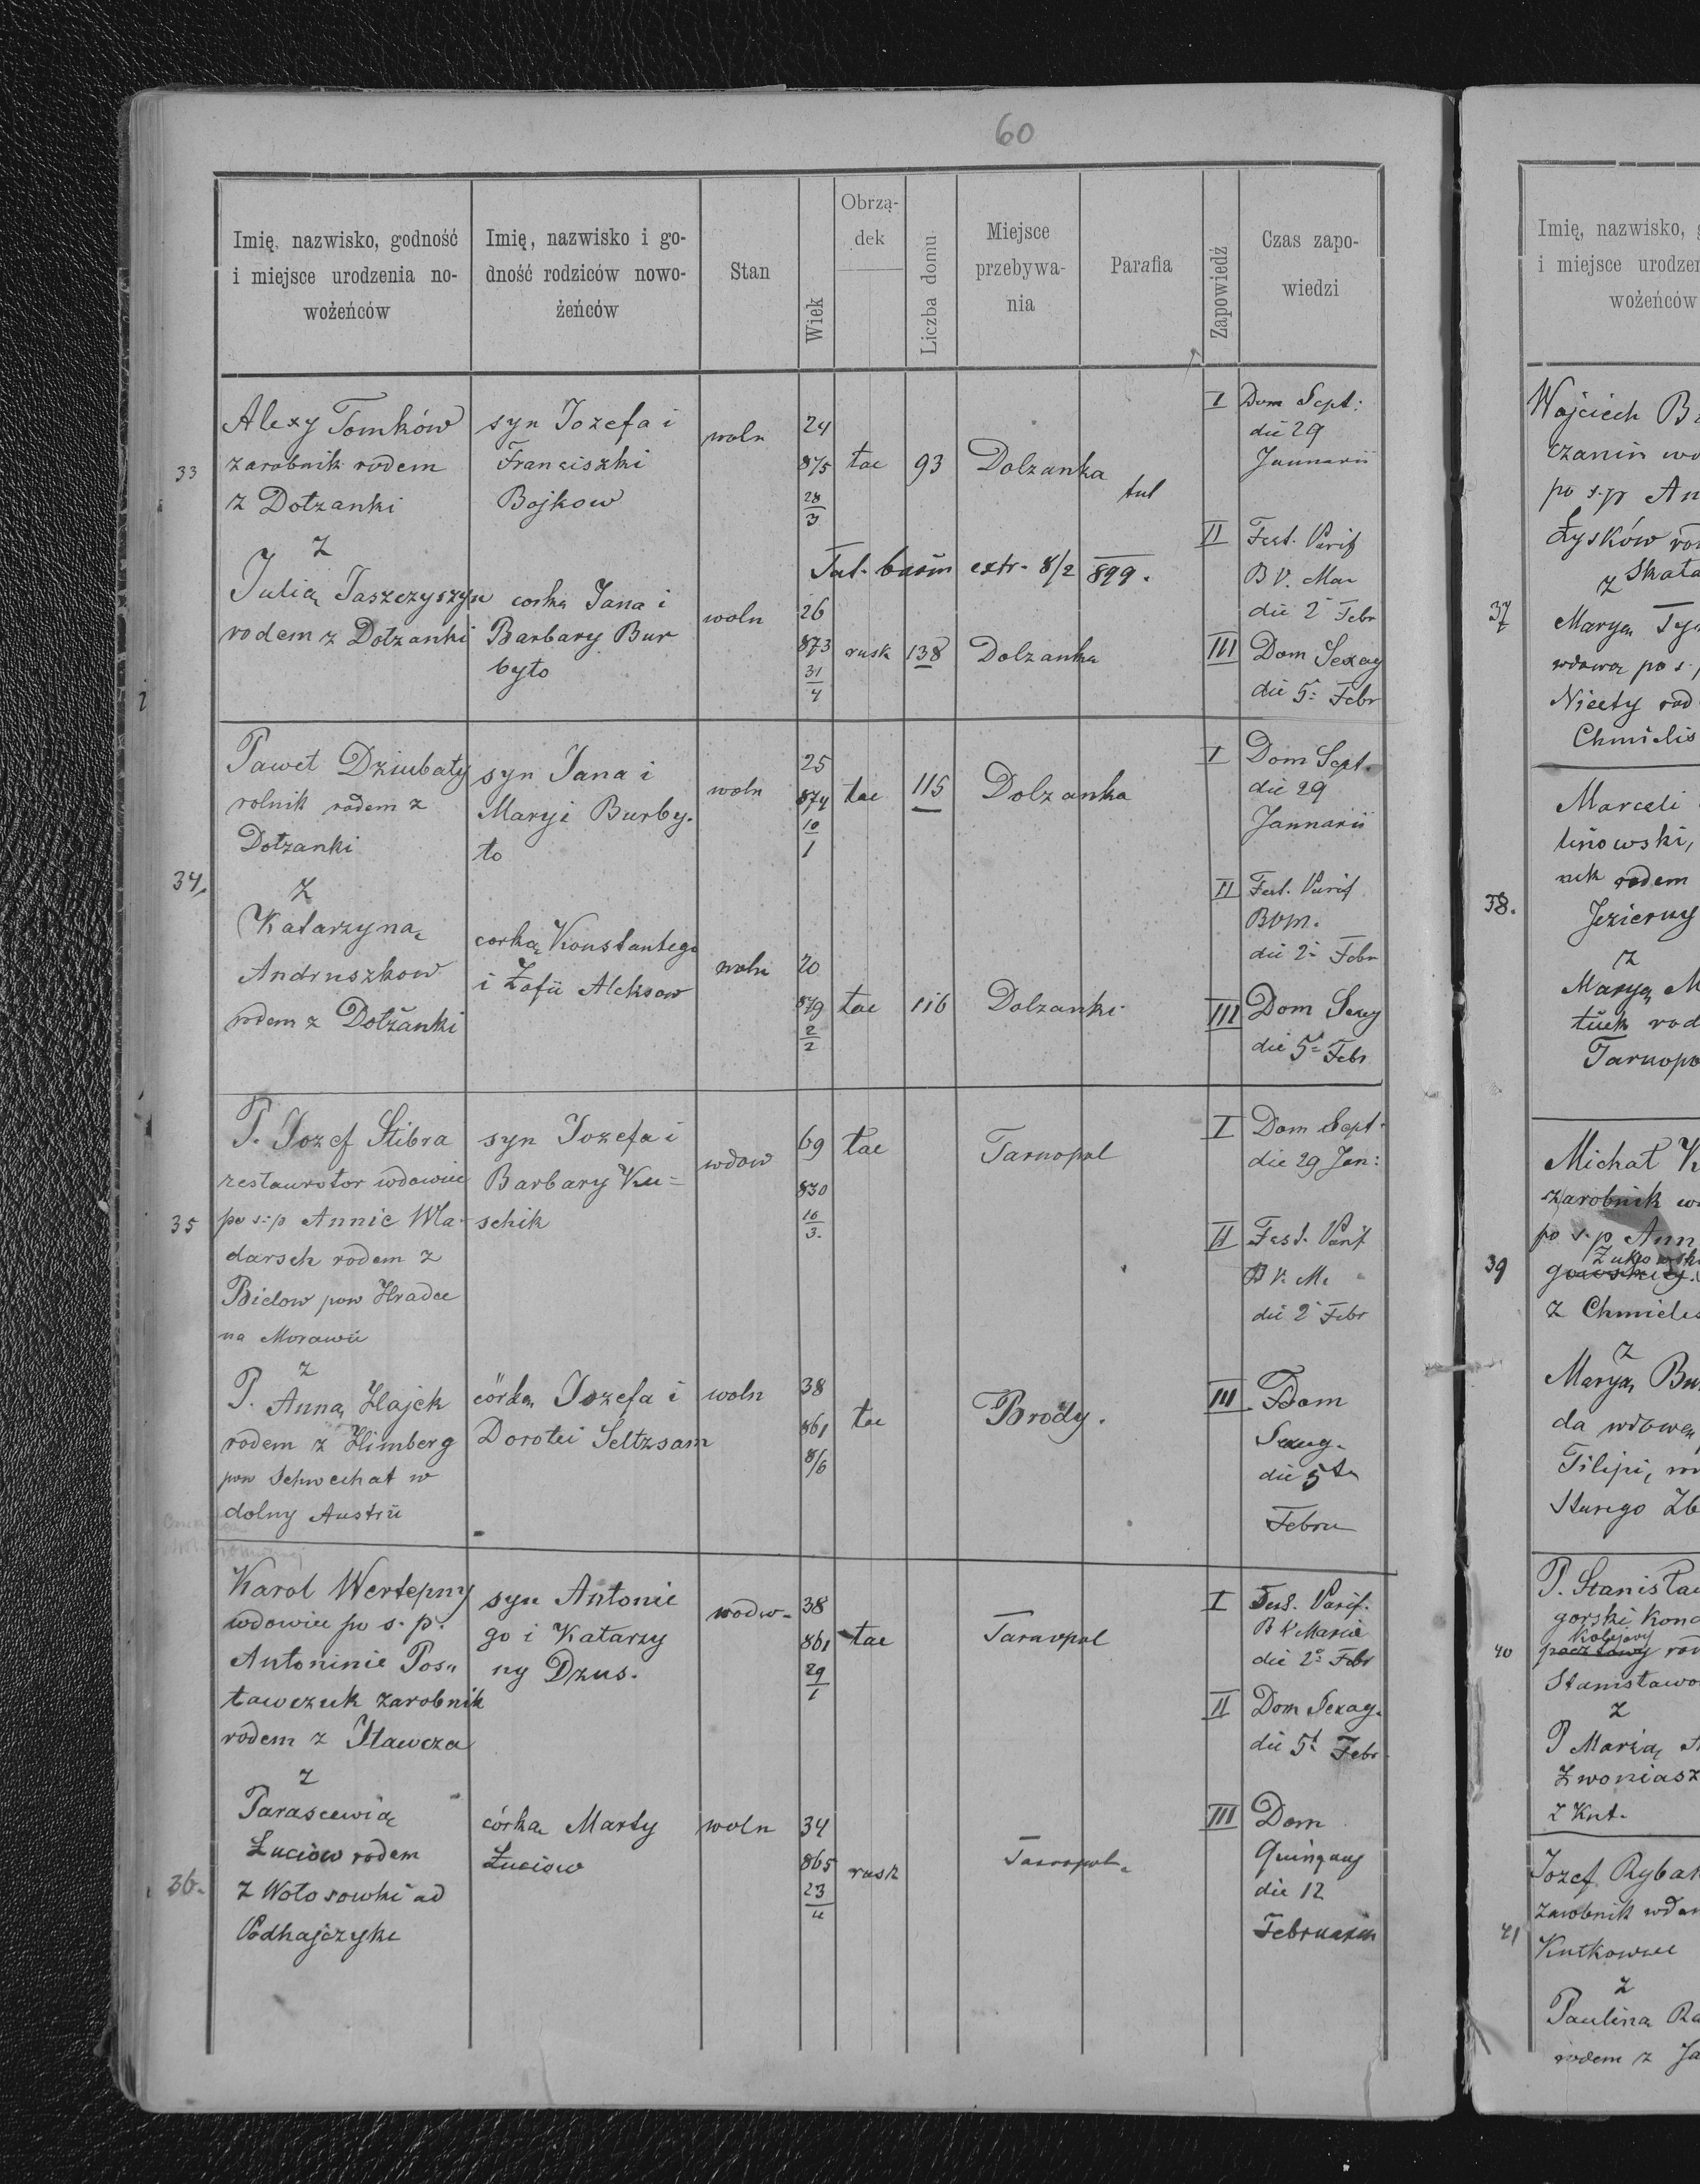 60
Imię, nazwisko, godność
i miejsce urodzenia no-
wożeńców
Imię, nazwisko i go-
dność rodziców nowo-
żeńców
Stan
Wiek
Obrzą-
dek
Liczba domu
Miejsce
przebywa-
nia
Parafia
Zapowiedź
Czas zapo-
wiedzi
33
Alexy Tomków
zarobnik rodem
z Dołzanki
z
Julią Jaszczyszyn
rodem z Dołzanki
syn Jozefa i
Franciszki
Bojkow
corka Jana i
Barbary Bur
byto
woln
woln
24
875
28
3
26
873
31
4
łac
rusk
93
138
Dolzanka
tut
Tut. extr. 8/2 899.
Dolzanka
I Dom Sept:
die 29
Januarii
II Fest. Purif
B V. Mar
die 2 Febr
III Dom Sexag
die 5 Febr
34.
Paweł Dziubaty
rolnik rodem z
Dołzanki
z
Katarzyną
Andruszkow
rodem z Dołżanki
syn Jana i
Maryi Burby.
to
corką Konstantego
i Zofii Aleksow
woln
woln
25
874
10
1
20
879
2
2
łac
łac
115
116
Dolzanka
Dolzanki
I Dom Sept.
die 29
Januarii
II Fest. Purif
BVM.
die 2 Febr
III Dom Sexag
die 5 Febr
35
P. Jozef Stibra
restaurotor wdowiec
po s.p Annie Wla-
darsch rodem z
Bielow pow Hradec
na Morawii
z
P. Anną Hajek
rodem z Himberg
pow Schwechat w
dolny Austrii
syn Jozefa i
Barbary Ku=
schik
córką Jozefa i
Dorotei Seltzsam
wdow
woln
69
830
16
3.
38
861
8/6
łac
łac
Tarnopol
Brody.
I Dom Sept.
die 29 Jan:
II Fest. Purif
B V. M.
die 2 Febr
III. Dom
Sexag.
die 5ta
Febru
36.
Karol Wertepny
wdowiec po s. p.
Antoninie Pos"
tawczuk zarobnik
rodem z Iławcza
z
Parascewią
Łuciow rodem
z Wołosowki ad
Podhajczyki
syn Antonie
go i Katarzy
ny Dzus.
córką Marty
Łuciow
wodw-
woln
38
861
29
1
34
865
23
łac
rusk
Tarnopol
Tarnopol
I Fest. Purif.
B V Mariæ
die 2 Febr
II Dom Sexag.
die 5 Febr.
III Dom
Quinquag
die 12
Februarii
Imię, nazwisko,
i miejsce urodzen
wożeńców
37
Wojciech
po s.p An
Łysków
z Skała
Maryą
wdową po s.
Nicety rod
Chmielis
38.
Marceli
linowski,
nik rodem
Jezierny
z
Maryą M
rod
Tarnopo
39
Michał K
zarobnik
po s.p Ann
z Chmieles
z
Maryą Bu
da wdową
Filipi,
Starego Zb
40
P. Stanisław
gorski Kond
Kolejowy
pocztowy
Stanisławo
z
P Marią
Zwoniasz
z Knt.
41
Jozef Rybak
zarobnik
Kutkowiec
z
Paulina Ra
rodem z Ja